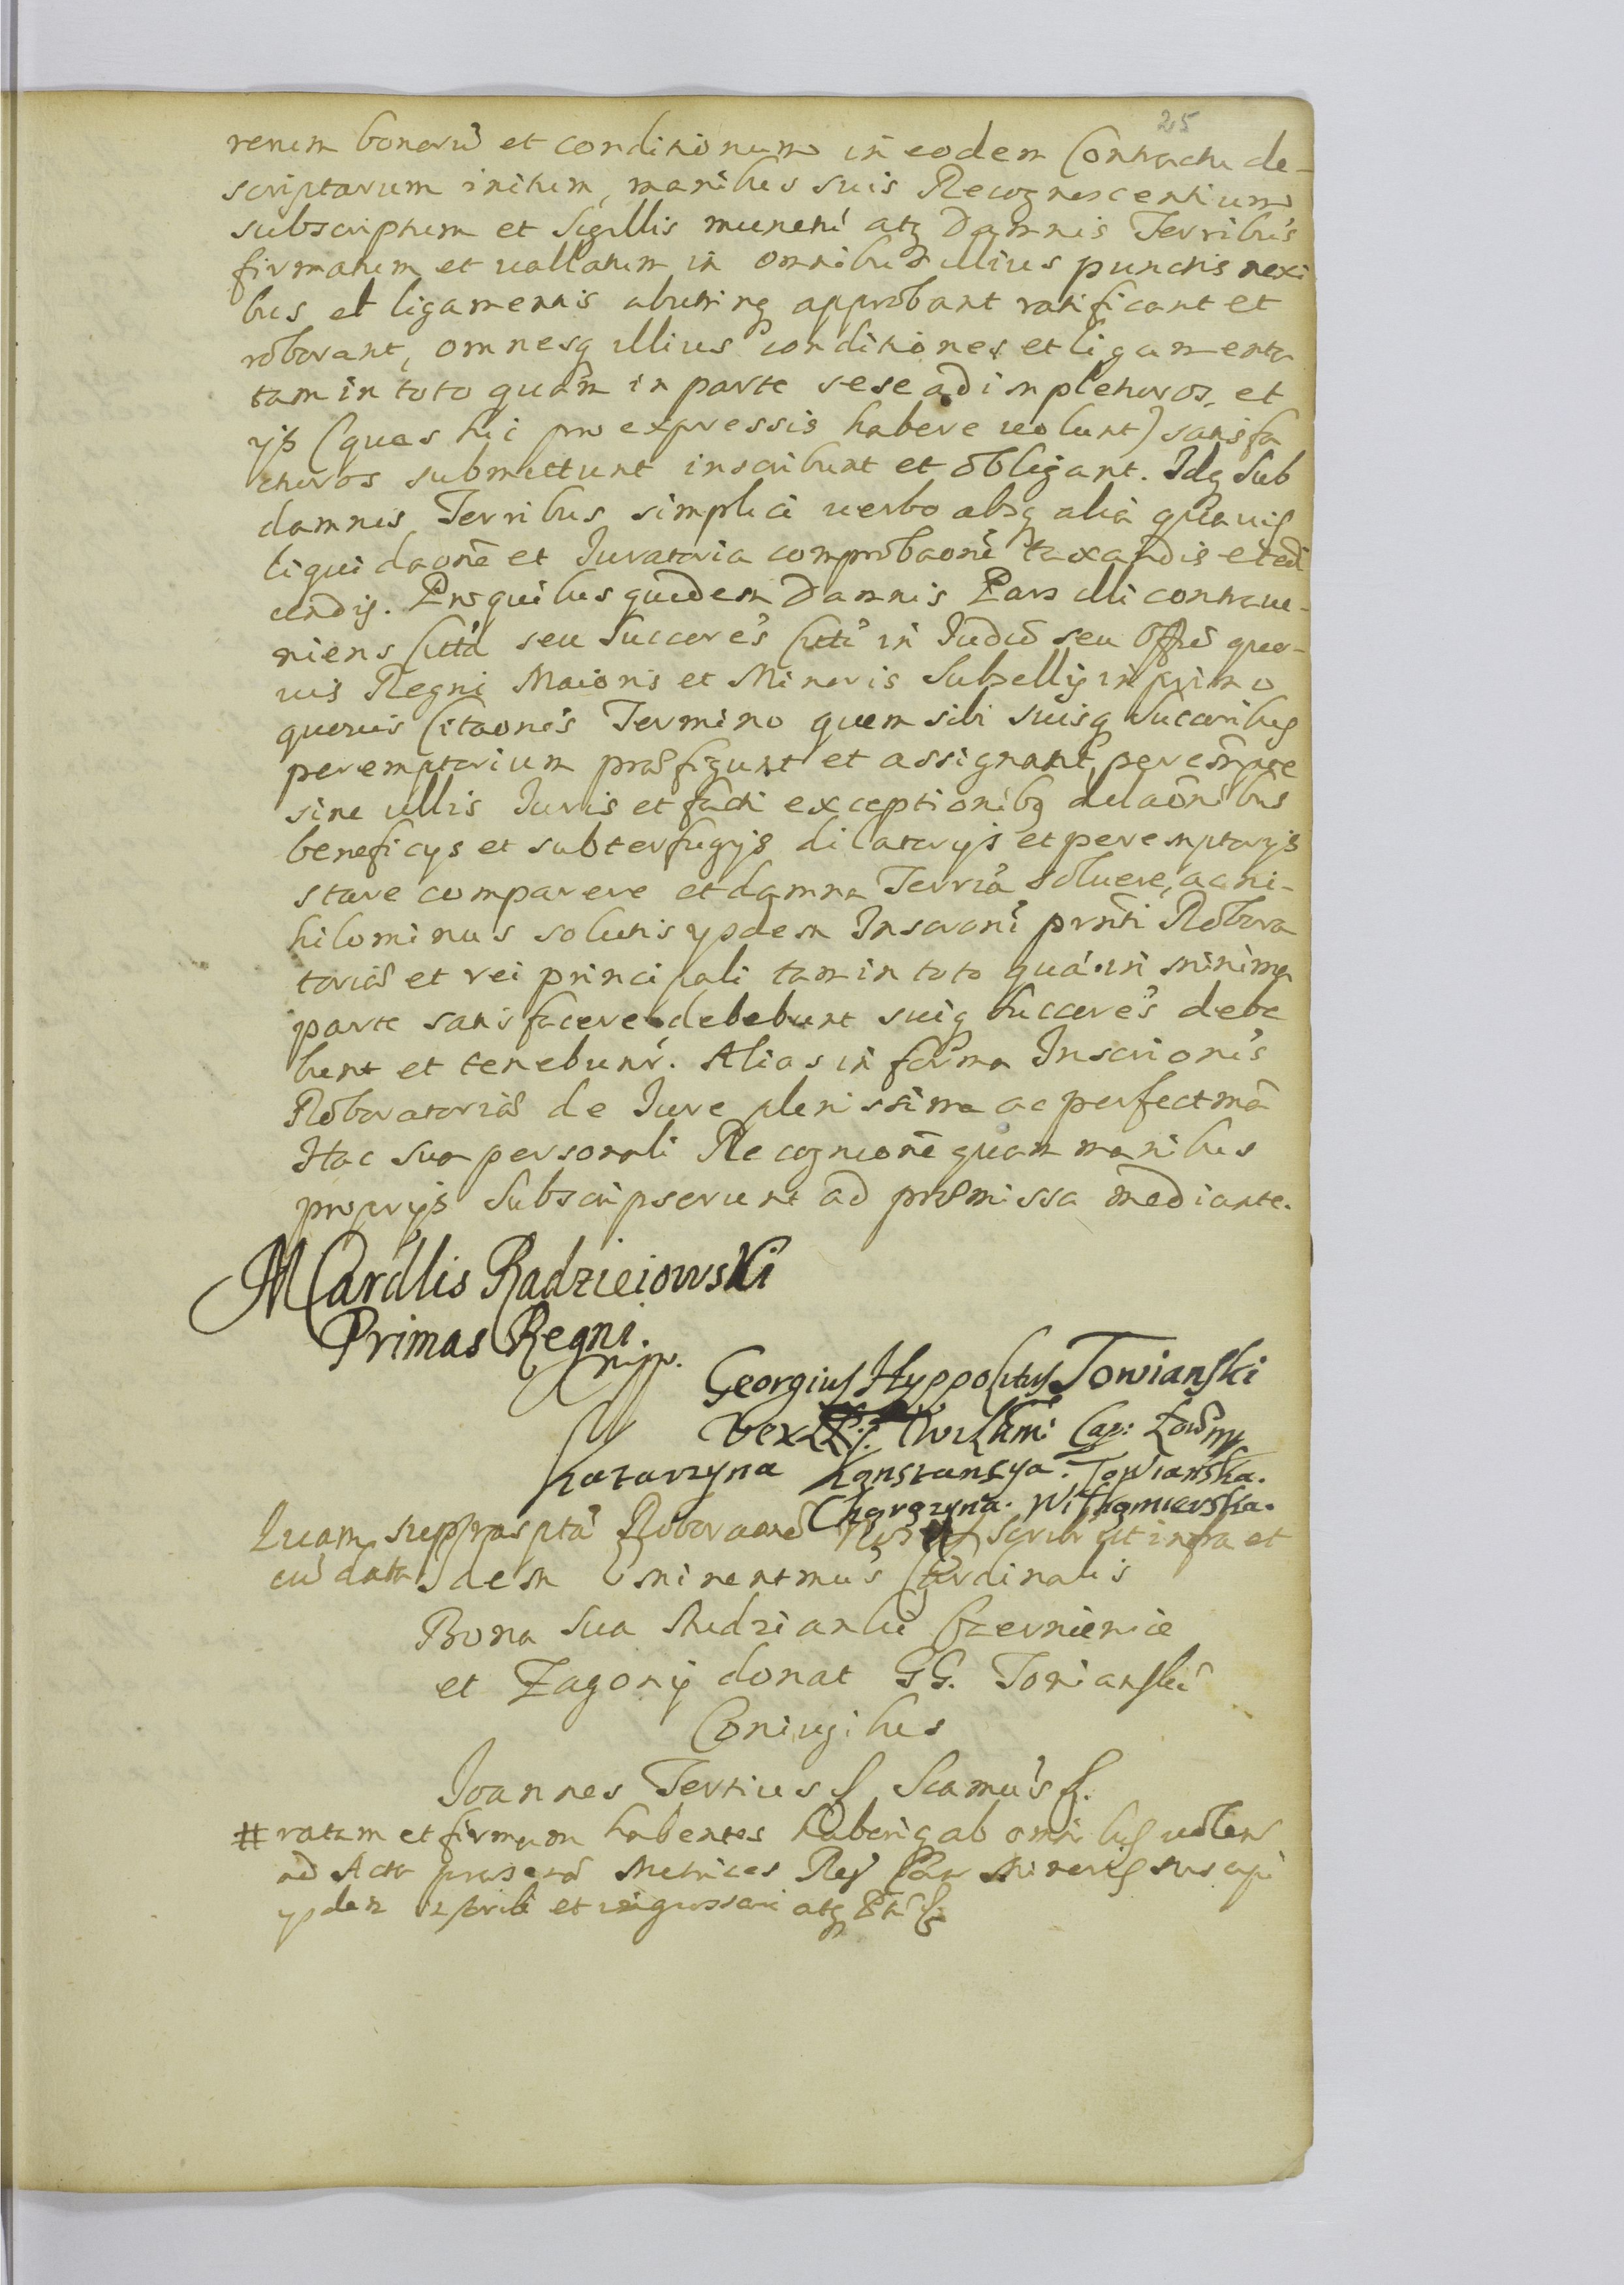 25
renum bonorũ et conditionum in eodem Contractu de-
scriptarum initum, manibus suis Recognoscentium
subscriptum et Sigillis munitũ atq Damnis Terribus
firmatum et vallatum in omnibus illius punctis nexi
bus et ligamentis approbant ratificant et
roborant, omnesq illius conditiones et ligamenta
tam in toto quàm in parte sese adimpleturos, et
ijs (quas hic pro expressis habere volunt) satisfa
cturos submittunt inscribunt et obligant. Idq Sub
damnis Terribus simplici verbo absq alia quavis
liquidaone et Iuratoria comprobaone taxandis et edi
cendis. Pro quibus quidem Damnis Pars illi contrave-
niens Citta seu Succores Citti in Iudicio seu Offo quo-
vis Regni Maioris et Minoris Subsellij in primo
quovis Citaonis Termino quem sibi suisq Succoribus
peremptorium præfigunt et assignant, perempte
sine ullis Iuris et facti exceptionibq dilaonibus
beneficys et subterfugijs dilatorijs et peremptorijs
stare comparere et damna Terria soluere, ac ni-
hilominus solutis ijsdem Inscrioni prnti Robora
toriæ et rei principali tam in toto quá in minima
parte satisfacere debebunt suiq Succores debe
bunt et tenebunr. Alias in forma Inscrionis
Roboratoriæ de Iure plenissima ac perfectma
Hac sua personali Recognione quam manibus
proprijs Subscripserunt ad præmissa mediante.
M Cardlis Radzieiowski
Primas Regni.
mp.
Georgius Hyppolitus Towianski
Vex Cap: Łow mp
Katarzyna Konstancya. Towianska.
Chorązyna. Wiłkomierska.
Quam suppraspta Roboraone Nos ut infra et
cũ data
Idem Eminentmus Cardinalis
Bona Sua Rudzianki Czerniewice
et Zagorij donat GG. Towianskie
Coniugibus
Joannes Tertius S Scamus S.
# ratam et firmam habentes haberiq ab omnibus volen
ad Acta præsend Metrices Regni Minoris suscipi
ijsdem et ingrossari atq